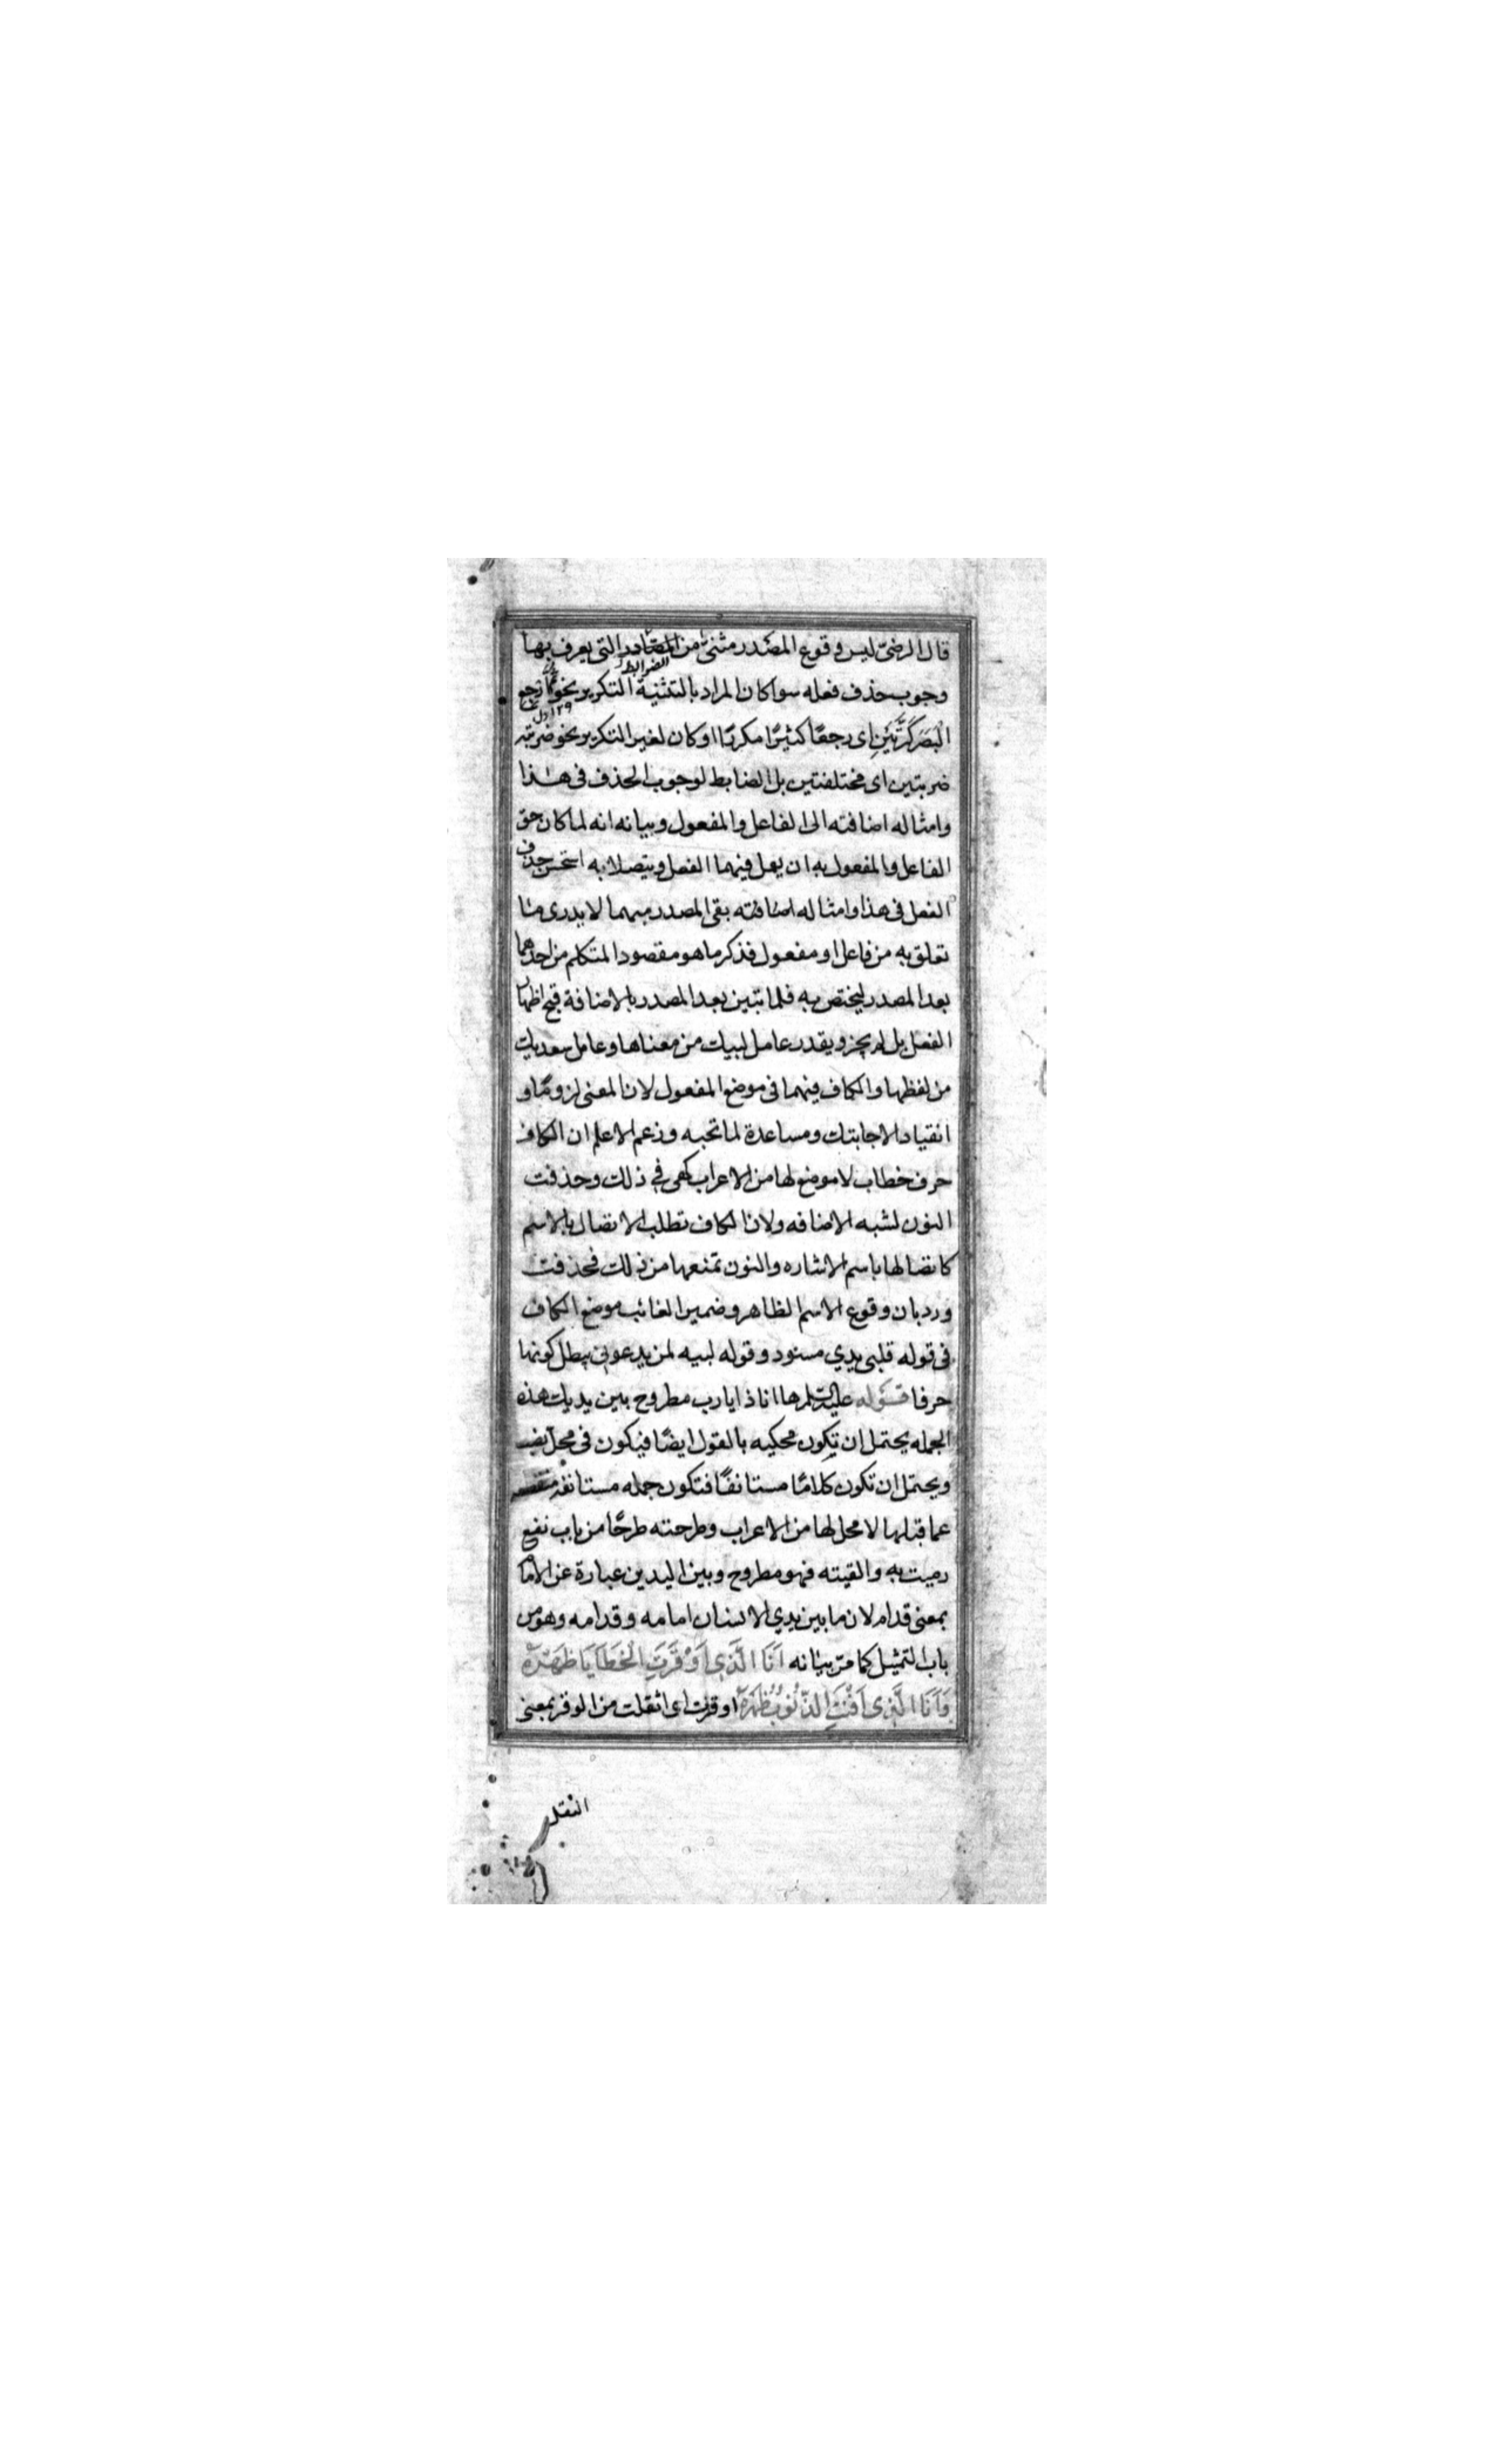 قال الرضىّ ليس وقوع المصدر مثنىً من المصادر التى يعرف بها
الضوابط
وجوب حذف فعله سوا كان المراد بالتثنية التكرير نحو ثم ارجع
البَصَرَ كَرَّتَيْنِ اى رجعًا كثيرًا مكررًا او كان لغير التكرير نحو ضربته
ضربتين اى مختلفتين بل الضابط لوجوب الحذف فى هذا
وامثاله اضافته الى الفاعل والمفعول وبيانه انه لما كان حق
الفاعل والمفعول به ان يعمل فيهما الفعل ويتصلا به استحسن حذف
الفعل فى هذا وامثاله اضافته بقى المصدر مبهما لا يدرى ما
تعلق به من فاعل او مفعول فذكر ما هو مقصود المتكلم من احدهما
بعد المصدر ليختص به فلما تبين بعد المصدر بالاضافة قبح اظهار
الفعل بل لم يجز ويقدر عامل لبيك من معناها وعامل سعديك
من لفظها والكاف فيهما فى موضع المفعول لان المعنى لزومًا و
انقيادا لاجابتك ومساعدة لما تحبه وزعم الاعلم ان الكاف
حرف خطاب لا موضع لها من الاعراب كهى في ذلك وحذفت
النون لشبه الاضافه ولان الكاف تطلب الاتصال بالاسم
كاتصالها باسم الاشاره والنون تمنعها من ذلك فحذفت
ورد بان وقوع الاسم الظاهر وضمير الغائب موضع الكاف
فى قوله فلبى يدي مسور وقوله لبيه لمن يدعونى يبطل كونها
حرفا قوله عليه السلم ها انا ذا يا رب مطروح بين يديك هذه
الجمله يحتمل ان تكون محكيه بالقول ايضًا فيكون فى محل نصب
ويحتمل ان تكون كلامًا مستانفًا فتكون جمله مستانفه
عما قبلها لا محل لها من الاعراب وطرحته طرحًا من باب نفع
رميت به والقيته فهو مطروح وبين اليدين عبارة عن الامام
بمعنى قدام لان ما بين يدي الانسان امامه وقدامه وهو من
باب التمثيل كما مرّ بيانه اَنَا الَّذِى اَوْقَرَتِ الْخَطَايَا ظَهْرَهُ
وَاَنَا الَّذِى اَفْنَتِ الذُّنُوبُ عُمُرَهُ اوقرت اى اثقلت من الوقر بمعنى
الثقل